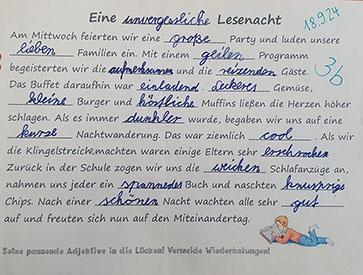 Eine unvergessliche Lesenacht
18.9.24
Am Mittwoch feierten wir eine große Party und luden unsere
lieben Familien ein. Mit einem geilen Programm
3b
begeisterten wir die aufmerksamen und die reizenden Gäste.
Das Buffet daraufhin war einladend. Leckeres Gemüse,
kleine Burger und köstliche Muffins ließen die Herzen höher
schlagen. Als es immer dunkler wurde, begaben wir uns auf eine
kurze Nachtwanderung. Das war ziemlich cool. Als wir
die Klingelstreich machten waren einige Eltern sehr erschrocken
Zurück in der Schule zogen wir uns die weichen Schlafanzüge an,
nahmen uns jeder ein spannendes Buch und naschten knusprige
Chips. Nach einer schönen Nacht wachten alle sehr gut
auf und freuten sich nun auf den Miteinandertag.
Setze passende Adjektive in die Lücken! Vermeide Wiederholungen!